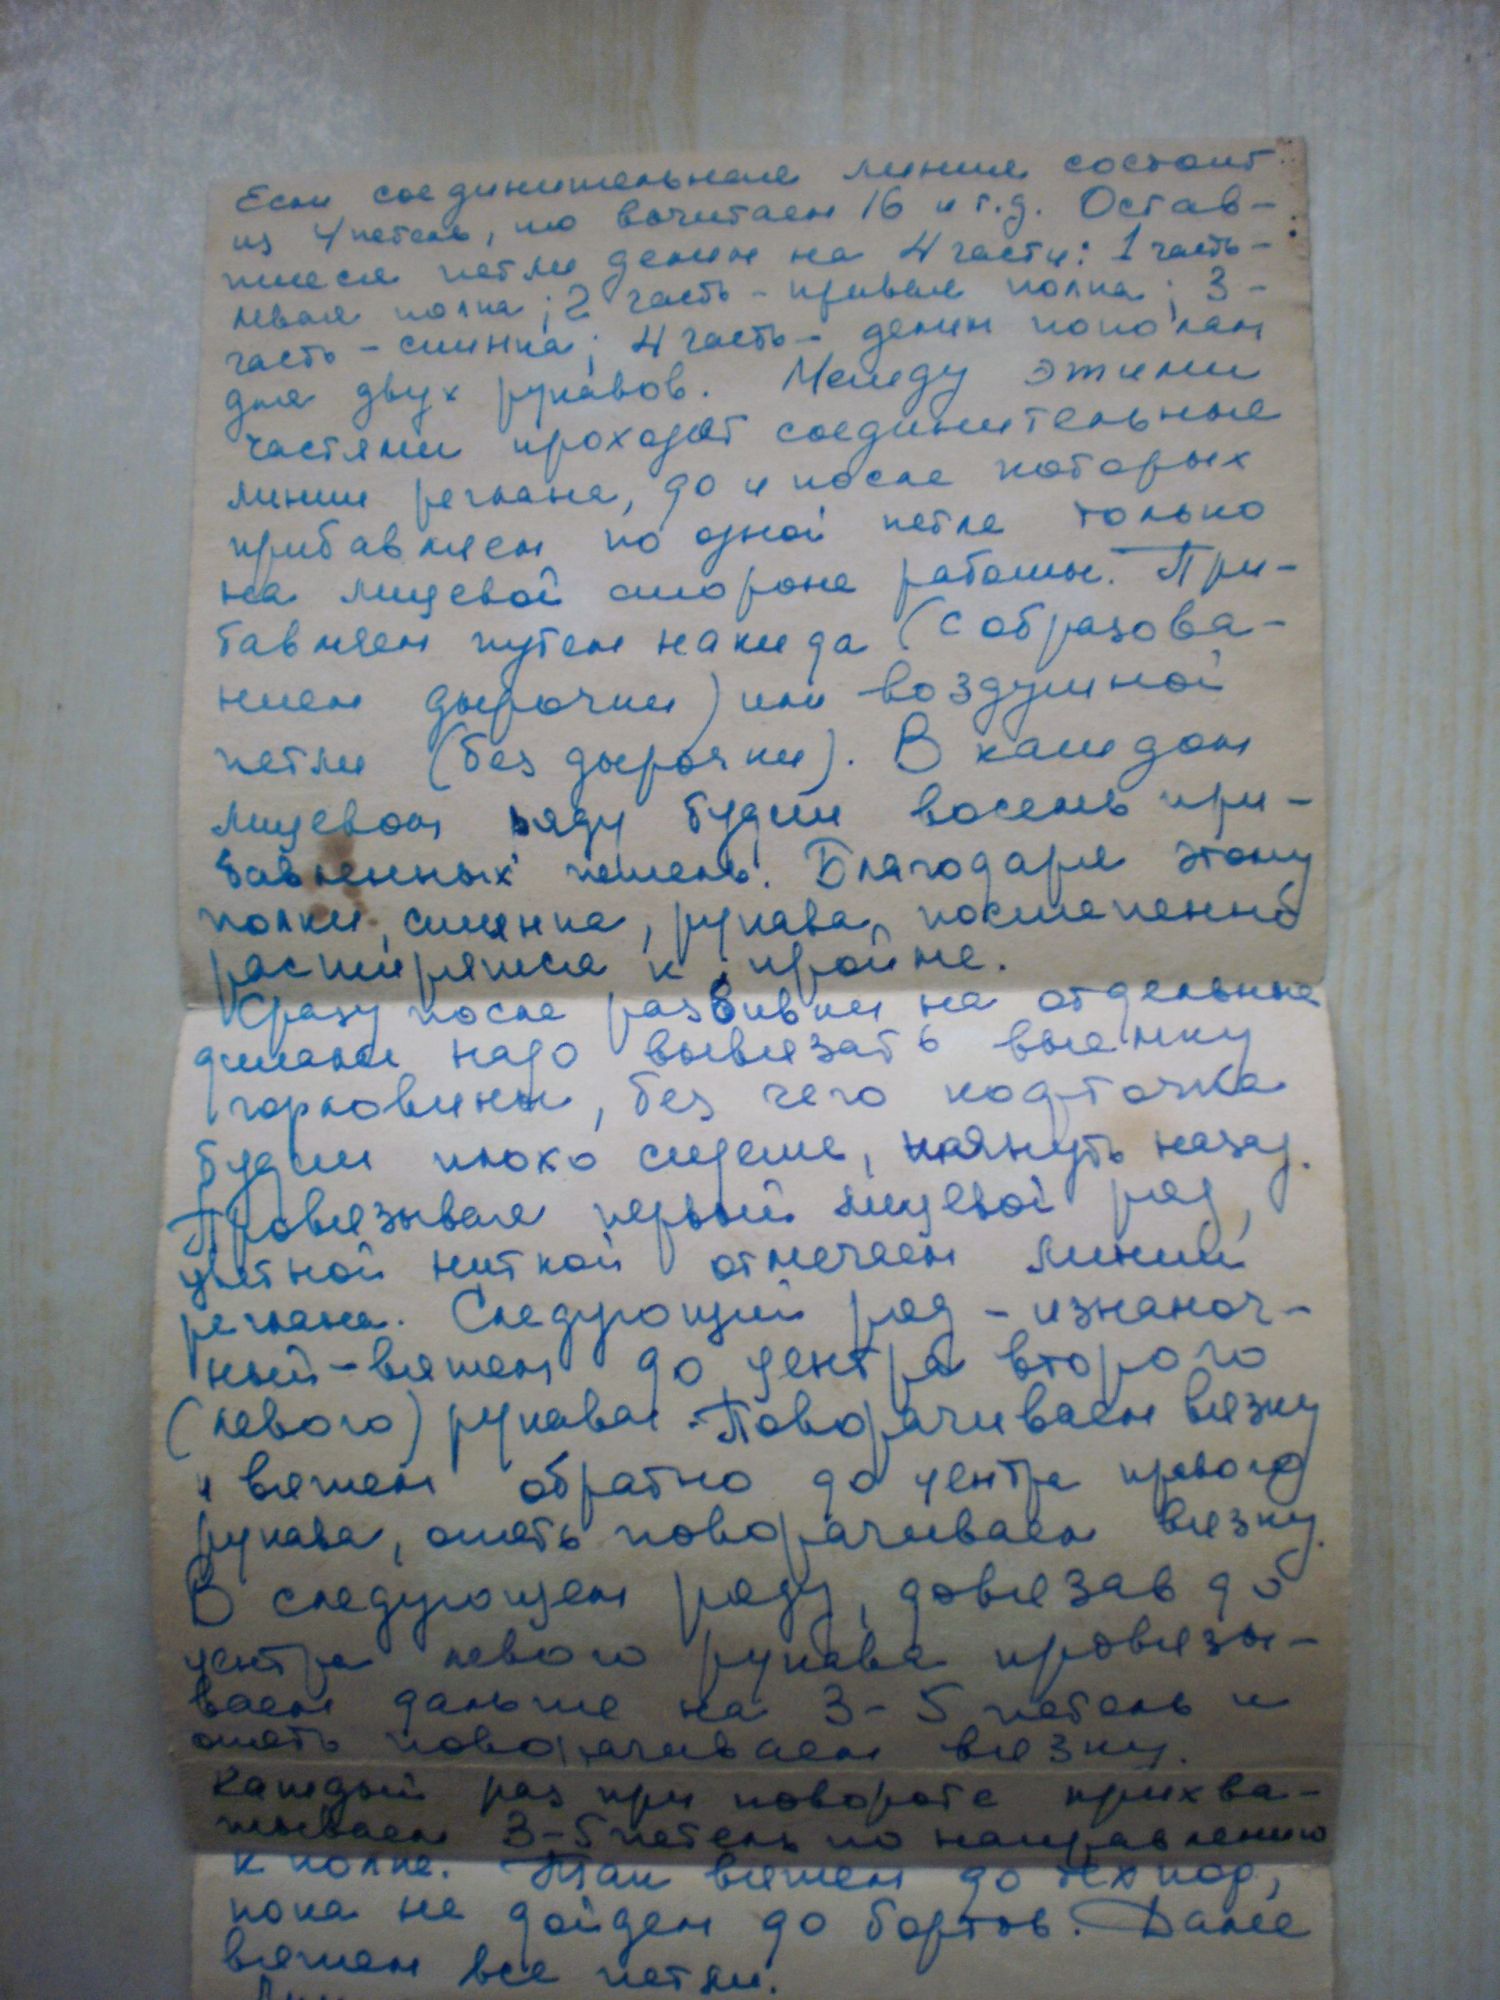 Если соединительная линия состоит
из 4 петель, то вычитаем 16 и т.д. Остав-
шиеся петли делим на 4 части: 1 часть-
левая полка; 2 часть - правая полка; 3-
часть - спинка; 4 часть - делим пополам
для двух рукавов. Между этими
частями проходят соединительные
линии реглана, до и после которых
прибавляем по одной петле только
на лицевой стороне работы. При-
бавляем путем накида (с образова-
нием дырочки) или воздушной
петли (без дырочки). В каждом
лицевом ряду будет восемь при-
бавленных петель. Благодаря этому
полки, спинка, рукава, постепенно
расширятся к пройме.
Сразу после разбивки на отдельные
детали надо вывязать выемку
горловины, без чего кофточка
будет плохо сидеть, тянуть назад.
Провязывая первый лицевой ряд,
цветной ниткой отмечаем линии
реглана. Следующий ряд - изнаноч-
ный - вяжем до центра второго
(левого) рукава. Поворачиваем вязку
и вяжем обратно до центра правого
рукава, опять поворачиваем вязку.
В следующем ряду, довязав до
центра левого рукава провязы-
ваем дальше на 3-5 петель и
опять поворачиваем вязку.
Каждый раз при повороте прихва-
тываем 3-5 петель по направлению
к полке. Так вяжем до тех пор,
пока не дойдем до бортов. Далее
вяжем все петли.